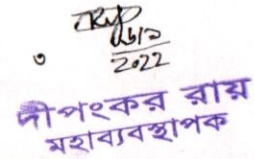 2022
দীপংকর রায়
মহাব্যবস্থাপক